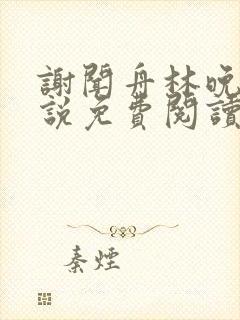 謝聞舟林晚
說免費閱讀
秦煙